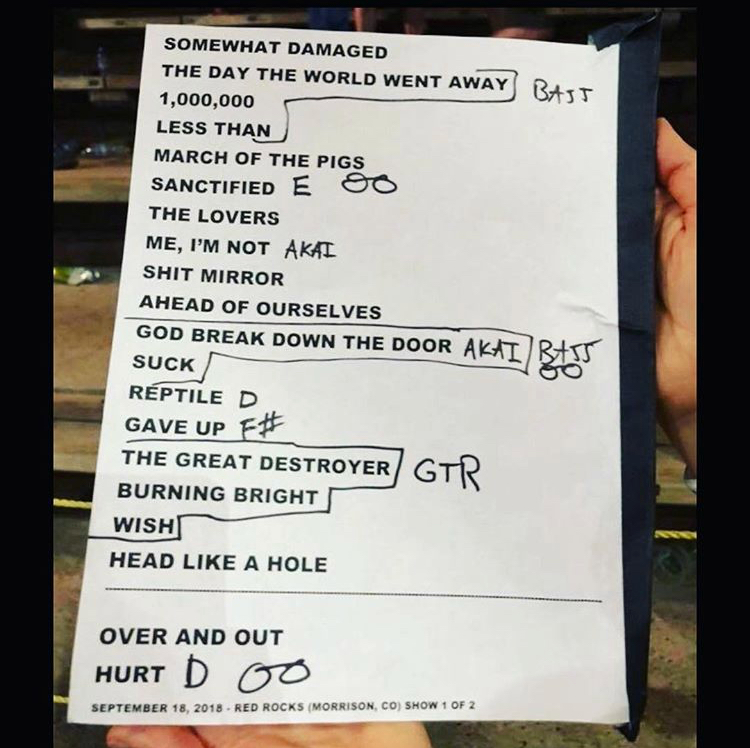 SOMEWHAT DAMAGED
THE DAY THE WORLD WENT AWAY BASS
1,000,000
LESS THAN
MARCH OF THE PIGS
SANCTIFIED E
THE LOVERS
ME, I'M NOT AKAI
SHIT MIRROR
AHEAD OF OURSELVES
GOD BREAK DOWN THE DOOR AKAI BASS
SUCK
REPTILE D
GAVE UP F#
THE GREAT DESTROYER GTR
BURNING BRIGHT
WISH
HEAD LIKE A HOLE
OVER AND OUT
HURT D
SEPTEMBER 18, 2018 - RED ROCKS (MORRISON, CO) SHOW 1 OF 2